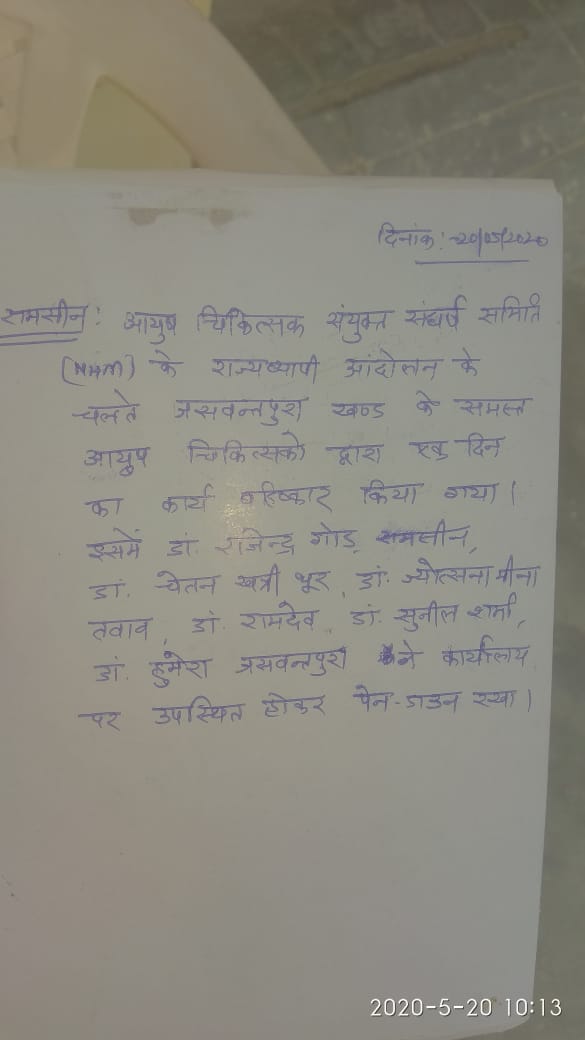 दिनांक:-20/05/2020
रामसीन: आयुष चिकित्सक संयुक्त संघर्ष समिति
(NHM) के राज्यव्यापी आंदोलन के
चलते जसवन्तपुरा खण्ड के समस्त
आयुष चिकित्सको द्वारा एक दिन
का कार्य बहिष्कार किया गया।
इसमें डां. राजेन्द्र गोड़, रामसीन,
डां. चेतन खत्री थूर, डां. ज्योत्सना मीना
तवाव, डां. रामदेव, डां. सुनील शर्मा,
डां. हुमेरा जसवन्तपुरा ने कार्यालय
पर उपस्थित होकर पेन-डाउन रखा।
2020-5-20 10:13